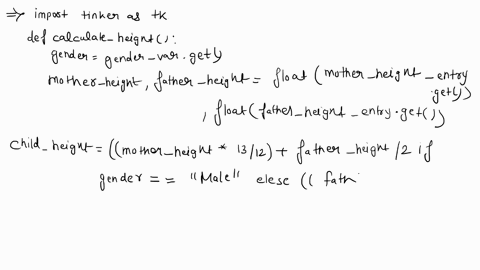 ⇒ impost tinker as tk
def calculate_height():
gender = gender_var.get()
mother_height, father_height = float(mother_height_entry
.get())
, float(father_height_entry.get())
Child_height = ((mother_height * 13/12) + father_height /2 if
gender == "Male" elesc (( fath